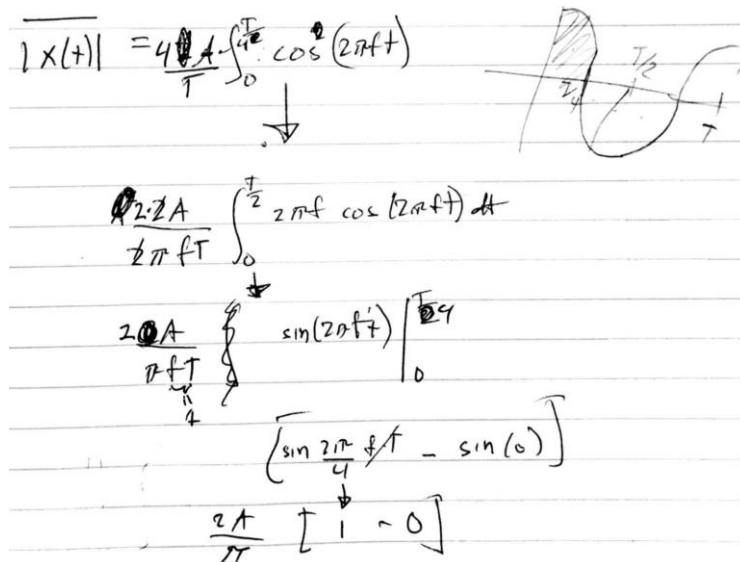 |x(t)| = 4A/T ∫_0^{T/4} cos(2πft)
T/2
T/4
T
↓
2·2A/2πfT ∫_0^{T/2} 2πf cos(2πft) dt
↓
2A/πfT sin(2πft) |_0^{T/4}
1
[sin 2π/4 fT - sin(0)]
↓
2A/π [1 - 0]